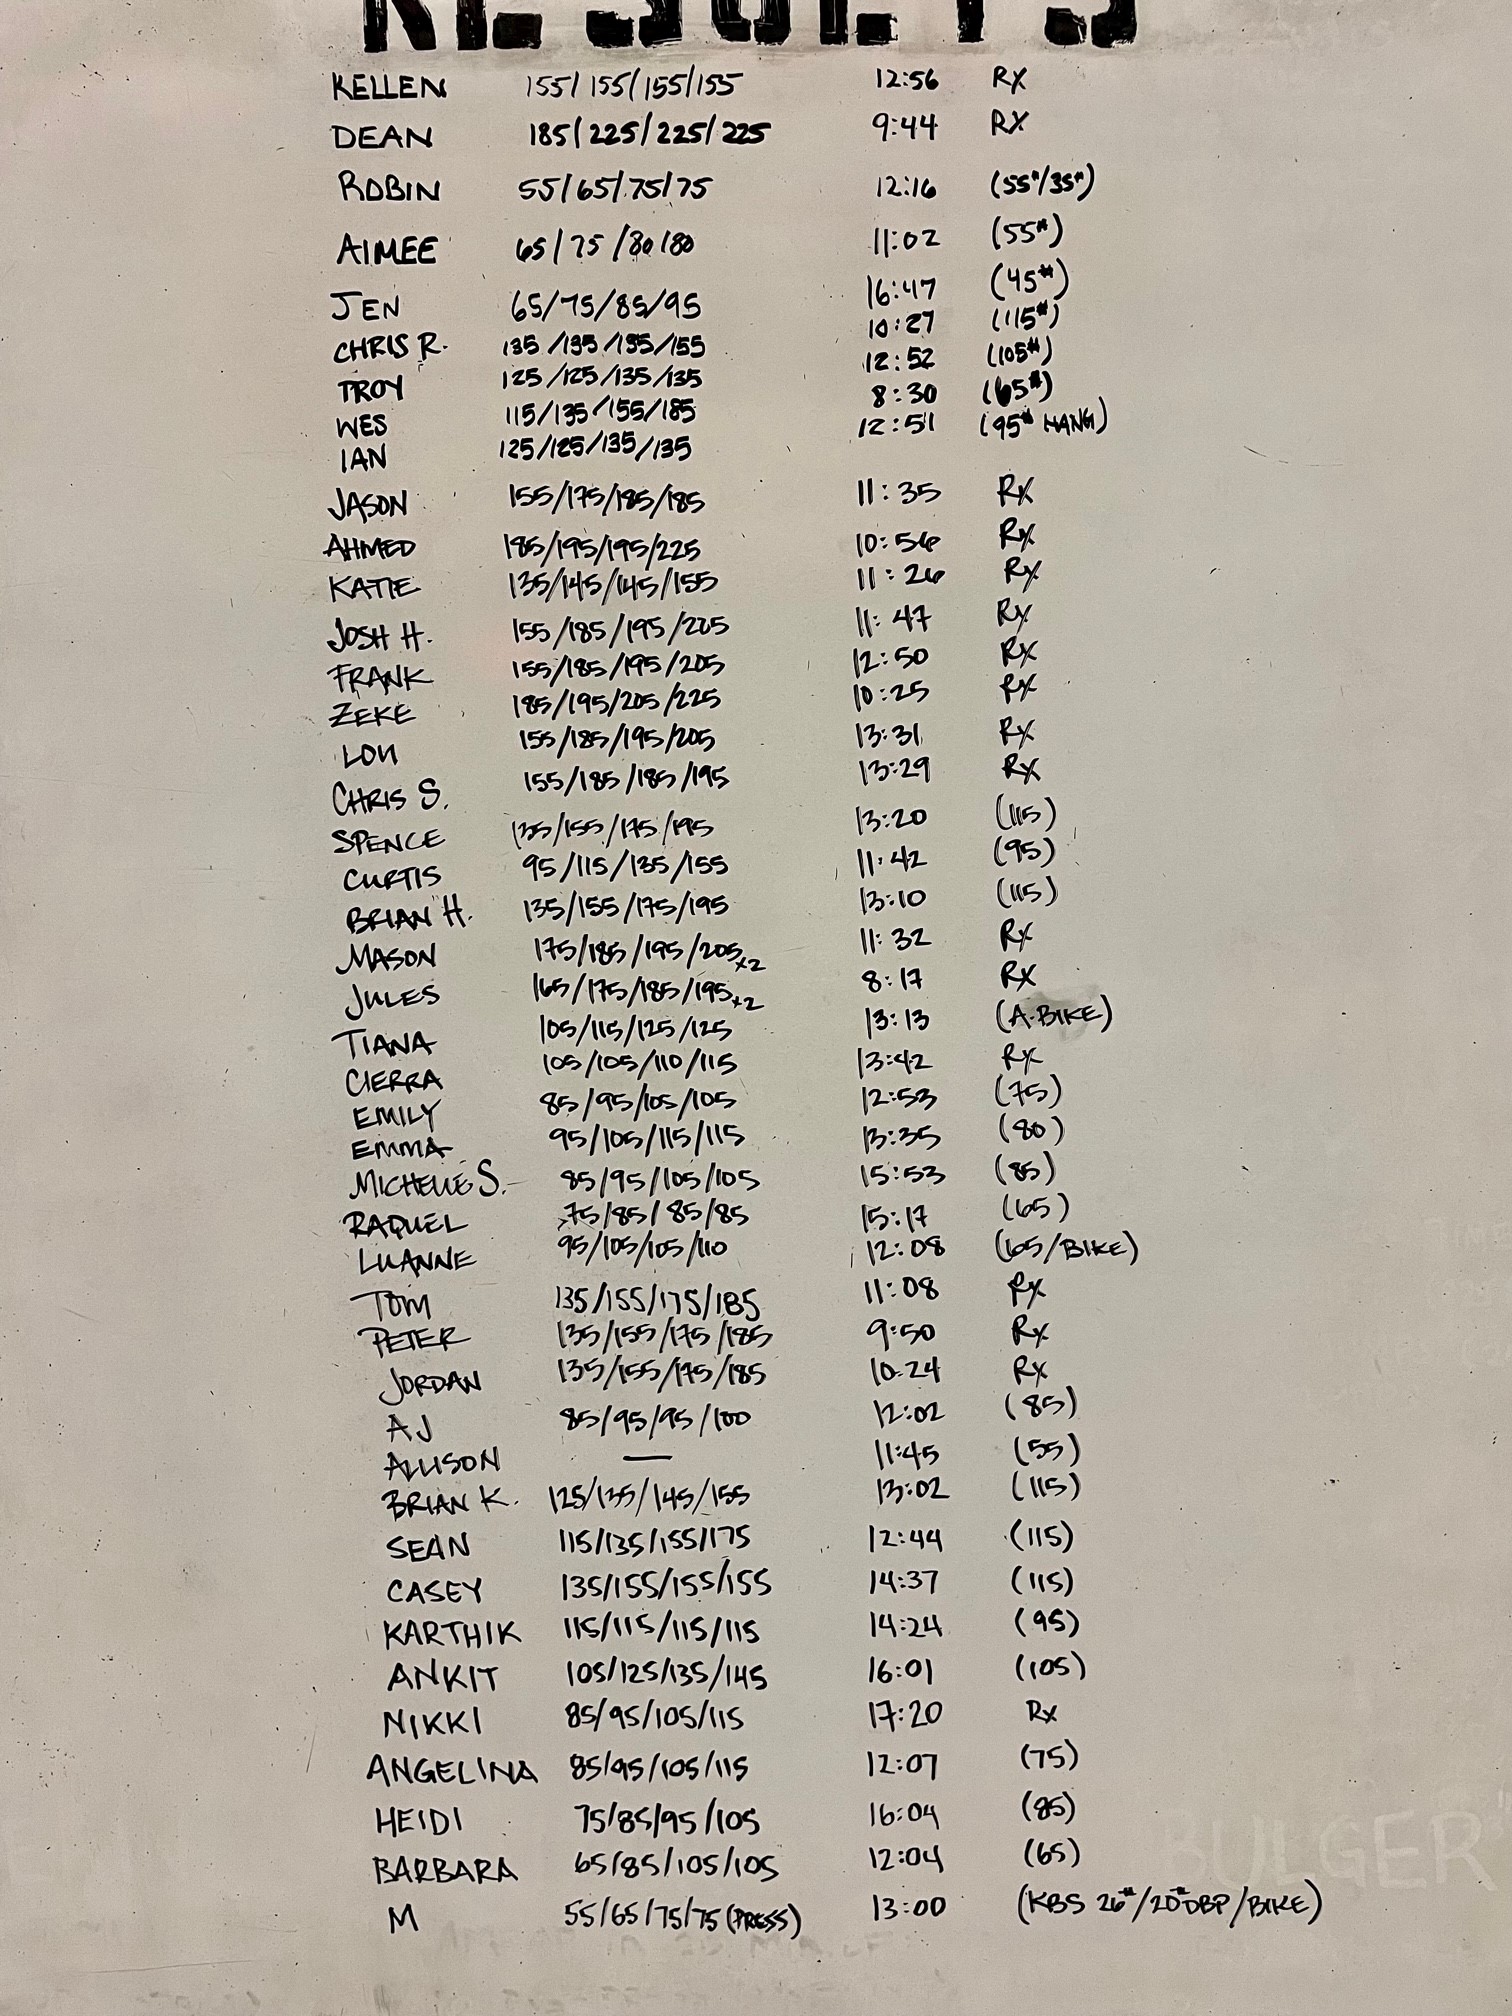 RESULTS
KELLEN 155/155/155/155 12:56 Rx
DEAN 185/225/225/225 9:44 Rx
ROBIN 55/65/75/75 12:16 (55#/35#)
AIMEE 65/75/80/80 11:02 (55#)
JEN 65/75/85/95 16:47 (45#)
CHRIS R. 135/135/155/155 10:27 (115#)
TROY 125/125/135/135 12:52 (105#)
WES 115/135/155/185 8:30 (65#)
IAN 125/125/135/135 12:51 (95# HANG)
JASON 155/175/185/185 11:35 Rx
AHMED 185/195/195/225 10:56 Rx
KATIE 135/145/145/155 11:26 Rx
JOSH H. 155/185/195/205 11:47 Rx
FRANK 155/185/195/205 12:50 Rx
ZEKE 185/195/205/225 10:25 Rx
LOU 155/185/195/205 13:31 Rx
CHRIS S. 155/185/185/195 13:29 Rx
SPENCE 135/155/175/195 13:20 (115)
CURTIS 95/115/135/155 11:42 (95)
BRIAN H. 135/155/175/195 13:10 (115)
MASON 175/185/195/205x2 11:32 Rx
JULES 165/175/185/195x2 8:17 Rx
TIANA 105/115/125/125 13:13 (A.BIKE)
CIERRA 105/105/110/115 13:42 Rx
EMILY 85/95/105/105 12:53 (75)
EMMA 95/105/115/115 13:35 (80)
MICHELLE S. 85/95/105/105 15:53 (85)
RAQUEL 75/85/85/85 15:17 (65)
LUANNE 95/105/105/110 12:08 (65/BIKE)
TOM 135/155/175/185 11:08 Rx
PETER 135/155/175/185 9:50 Rx
JORDAN 135/155/175/185 10:24 Rx
AJ 85/95/95/100 12:02 (85)
ALLISON — 11:45 (55)
BRIAN K. 125/135/145/155 13:02 (115)
SEAN 115/135/155/175 12:44 (115)
CASEY 135/155/155/155 14:37 (115)
KARTHIK 115/115/115/115 14:24 (95)
ANKIT 105/125/135/145 16:01 (105)
NIKKI 85/95/105/115 17:20 Rx
ANGELINA 85/95/105/115 12:07 (75)
HEIDI 75/85/95/105 16:04 (85)
BARBARA 65/85/105/105 12:04 (65)
M 55/65/75/75 (PRESS) 13:00 (KBS 26#/20# DBP/BIKE)
BULGER